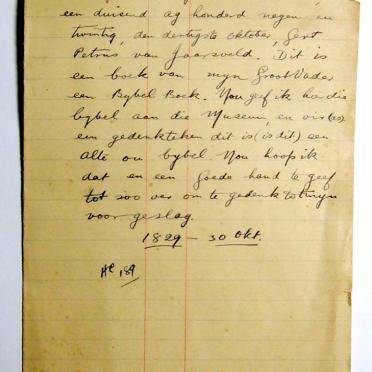 een duisend ag honderd negen en
twintig, den dertigste oktober, Gert
Petrus van Jaarsveld. Dit is
een boek van myn Groot Vader
een Bybel Boek. Nou gef ik hierdie
bybel aan die Museum en vir (as)
een gedenkteken dit is (is dit) een
alte ou bybel. Nou hoop ik
dat en een goede hand te geef
tot soo ver om te gedenk tot myn
voor geslag.
1829 – 30 Okt.
He 189